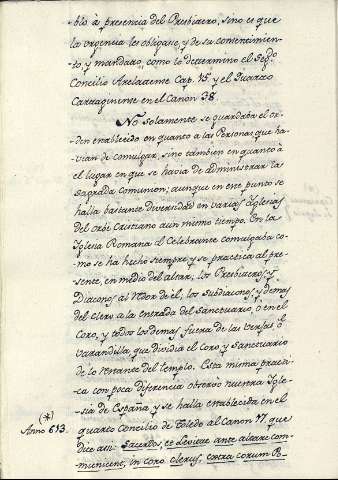 blo à presencia del Presbitero, sino es que
la urgencia les obligase, y de su consentimien-
to, y mandato, como lo determinò el Segdo.
Concilio Arelatense Cap. 15 y el Quarto
Cartaginense en el Canon 38.
No solamente se guardaba el or-
den establecido en quanto a las Personas que ha-
vian de comulgar, sino tambien en quanto à
el lugar en que se havia de administrar la
sagrada comunion; aunque en este punto se
halla bastante diversidad en varias Iglesias
del orbe Cristiano aun mismo tiempo. En la
Iglesia Romana el Celebrante comulgaba co-
mo se ha hecho siempre y se practica al pre-
sente, en medio del altar; los Presbiteros y
Diaconos al rededor de èl, los Subdiaconos y demas
del clero a la entrada del Santuario, ò en el
Coro, y todos los demas fuera de las verjas ò
varandilla que dividia el Coro y Santuario
de lo restante del templo. Esta misma practi-
ca con poca diferencia observò nuestra Igle-
sia de España y se halla establecida en el
(*)
Anno 613.
quarto Concilio de Toledo al Canon 17 que
dice assi: Sacerdos, et Levitae ante altare com-
municent, in coro clerus, extra corum P-